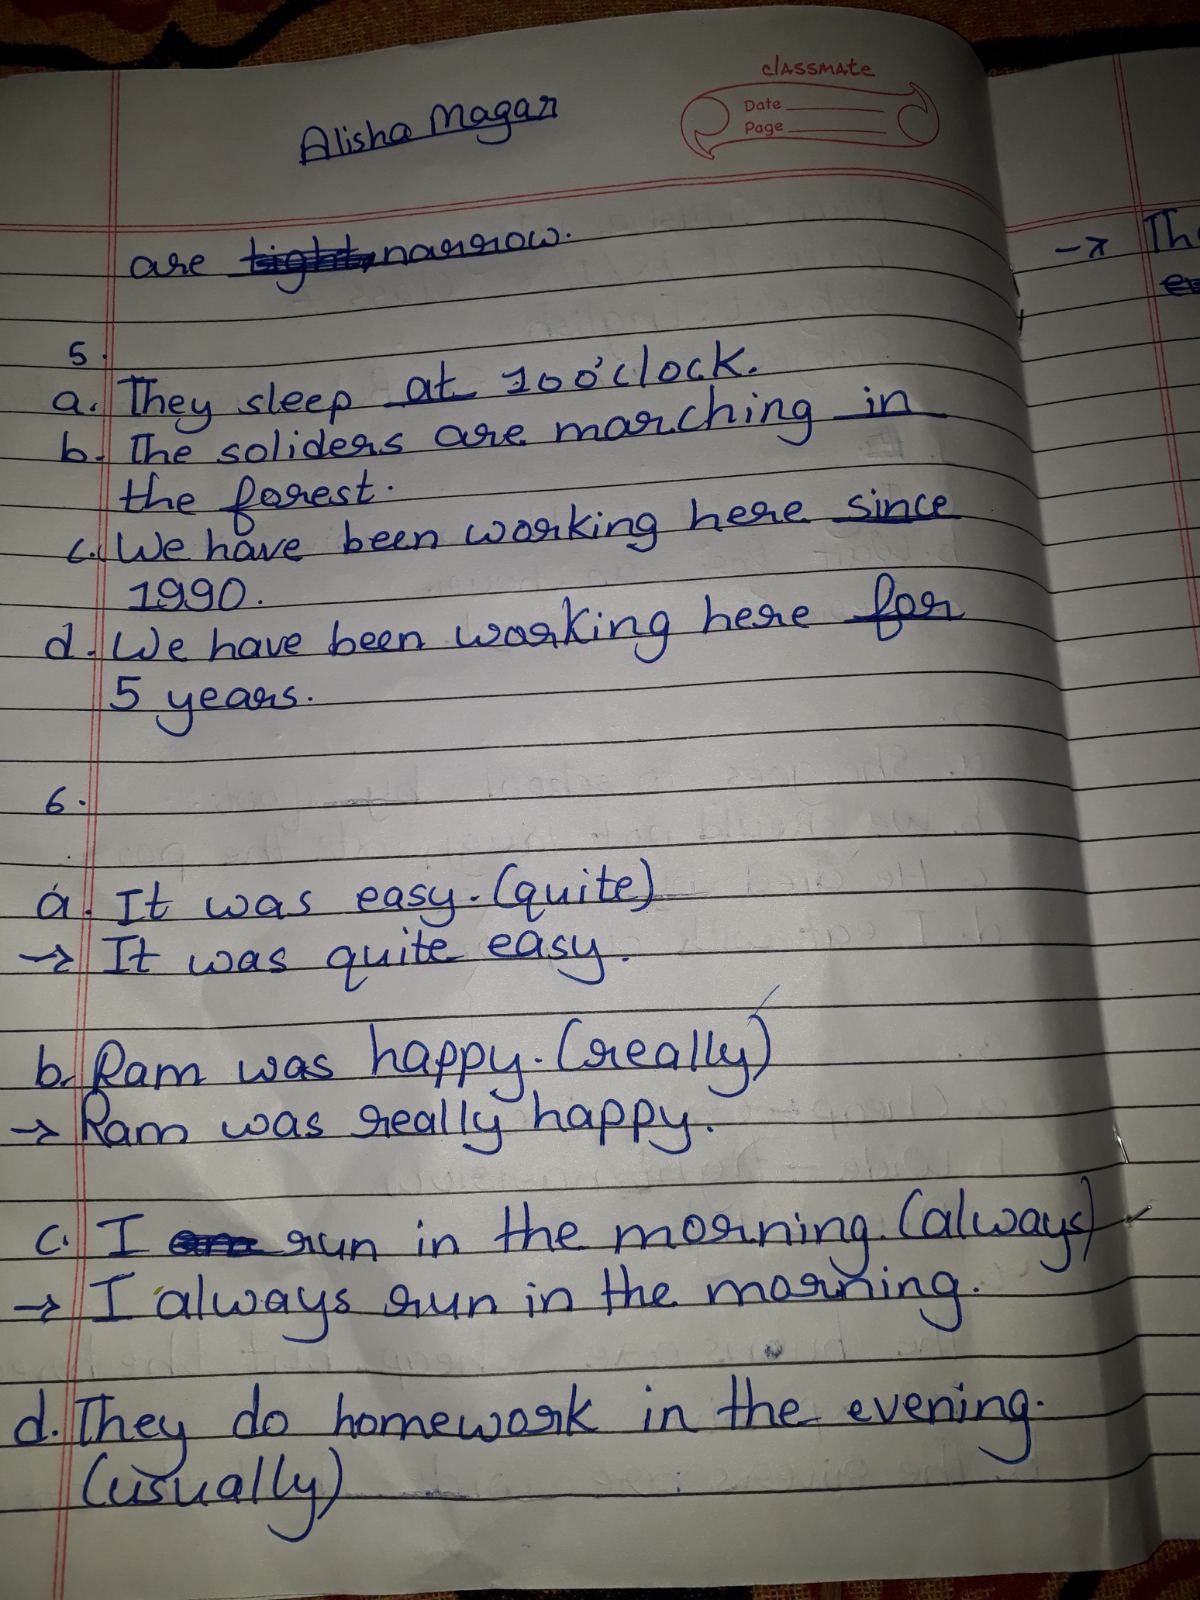 classmate
Date
Page
Alisha Magar
are narrow.
5.
a. They sleep at 10 o'clock.
b. The soliders are marching in
the forest.
c. We have been working here since
1990.
d. We have been working here for
5 years.
6.
a. It was easy. (quite)
→ It was quite easy.
b. Ram was happy. (really)
→ Ram was really happy.
c. I run in the morning. (always)
→ I always run in the morning.
d. They do homework in the evening.
(usually)